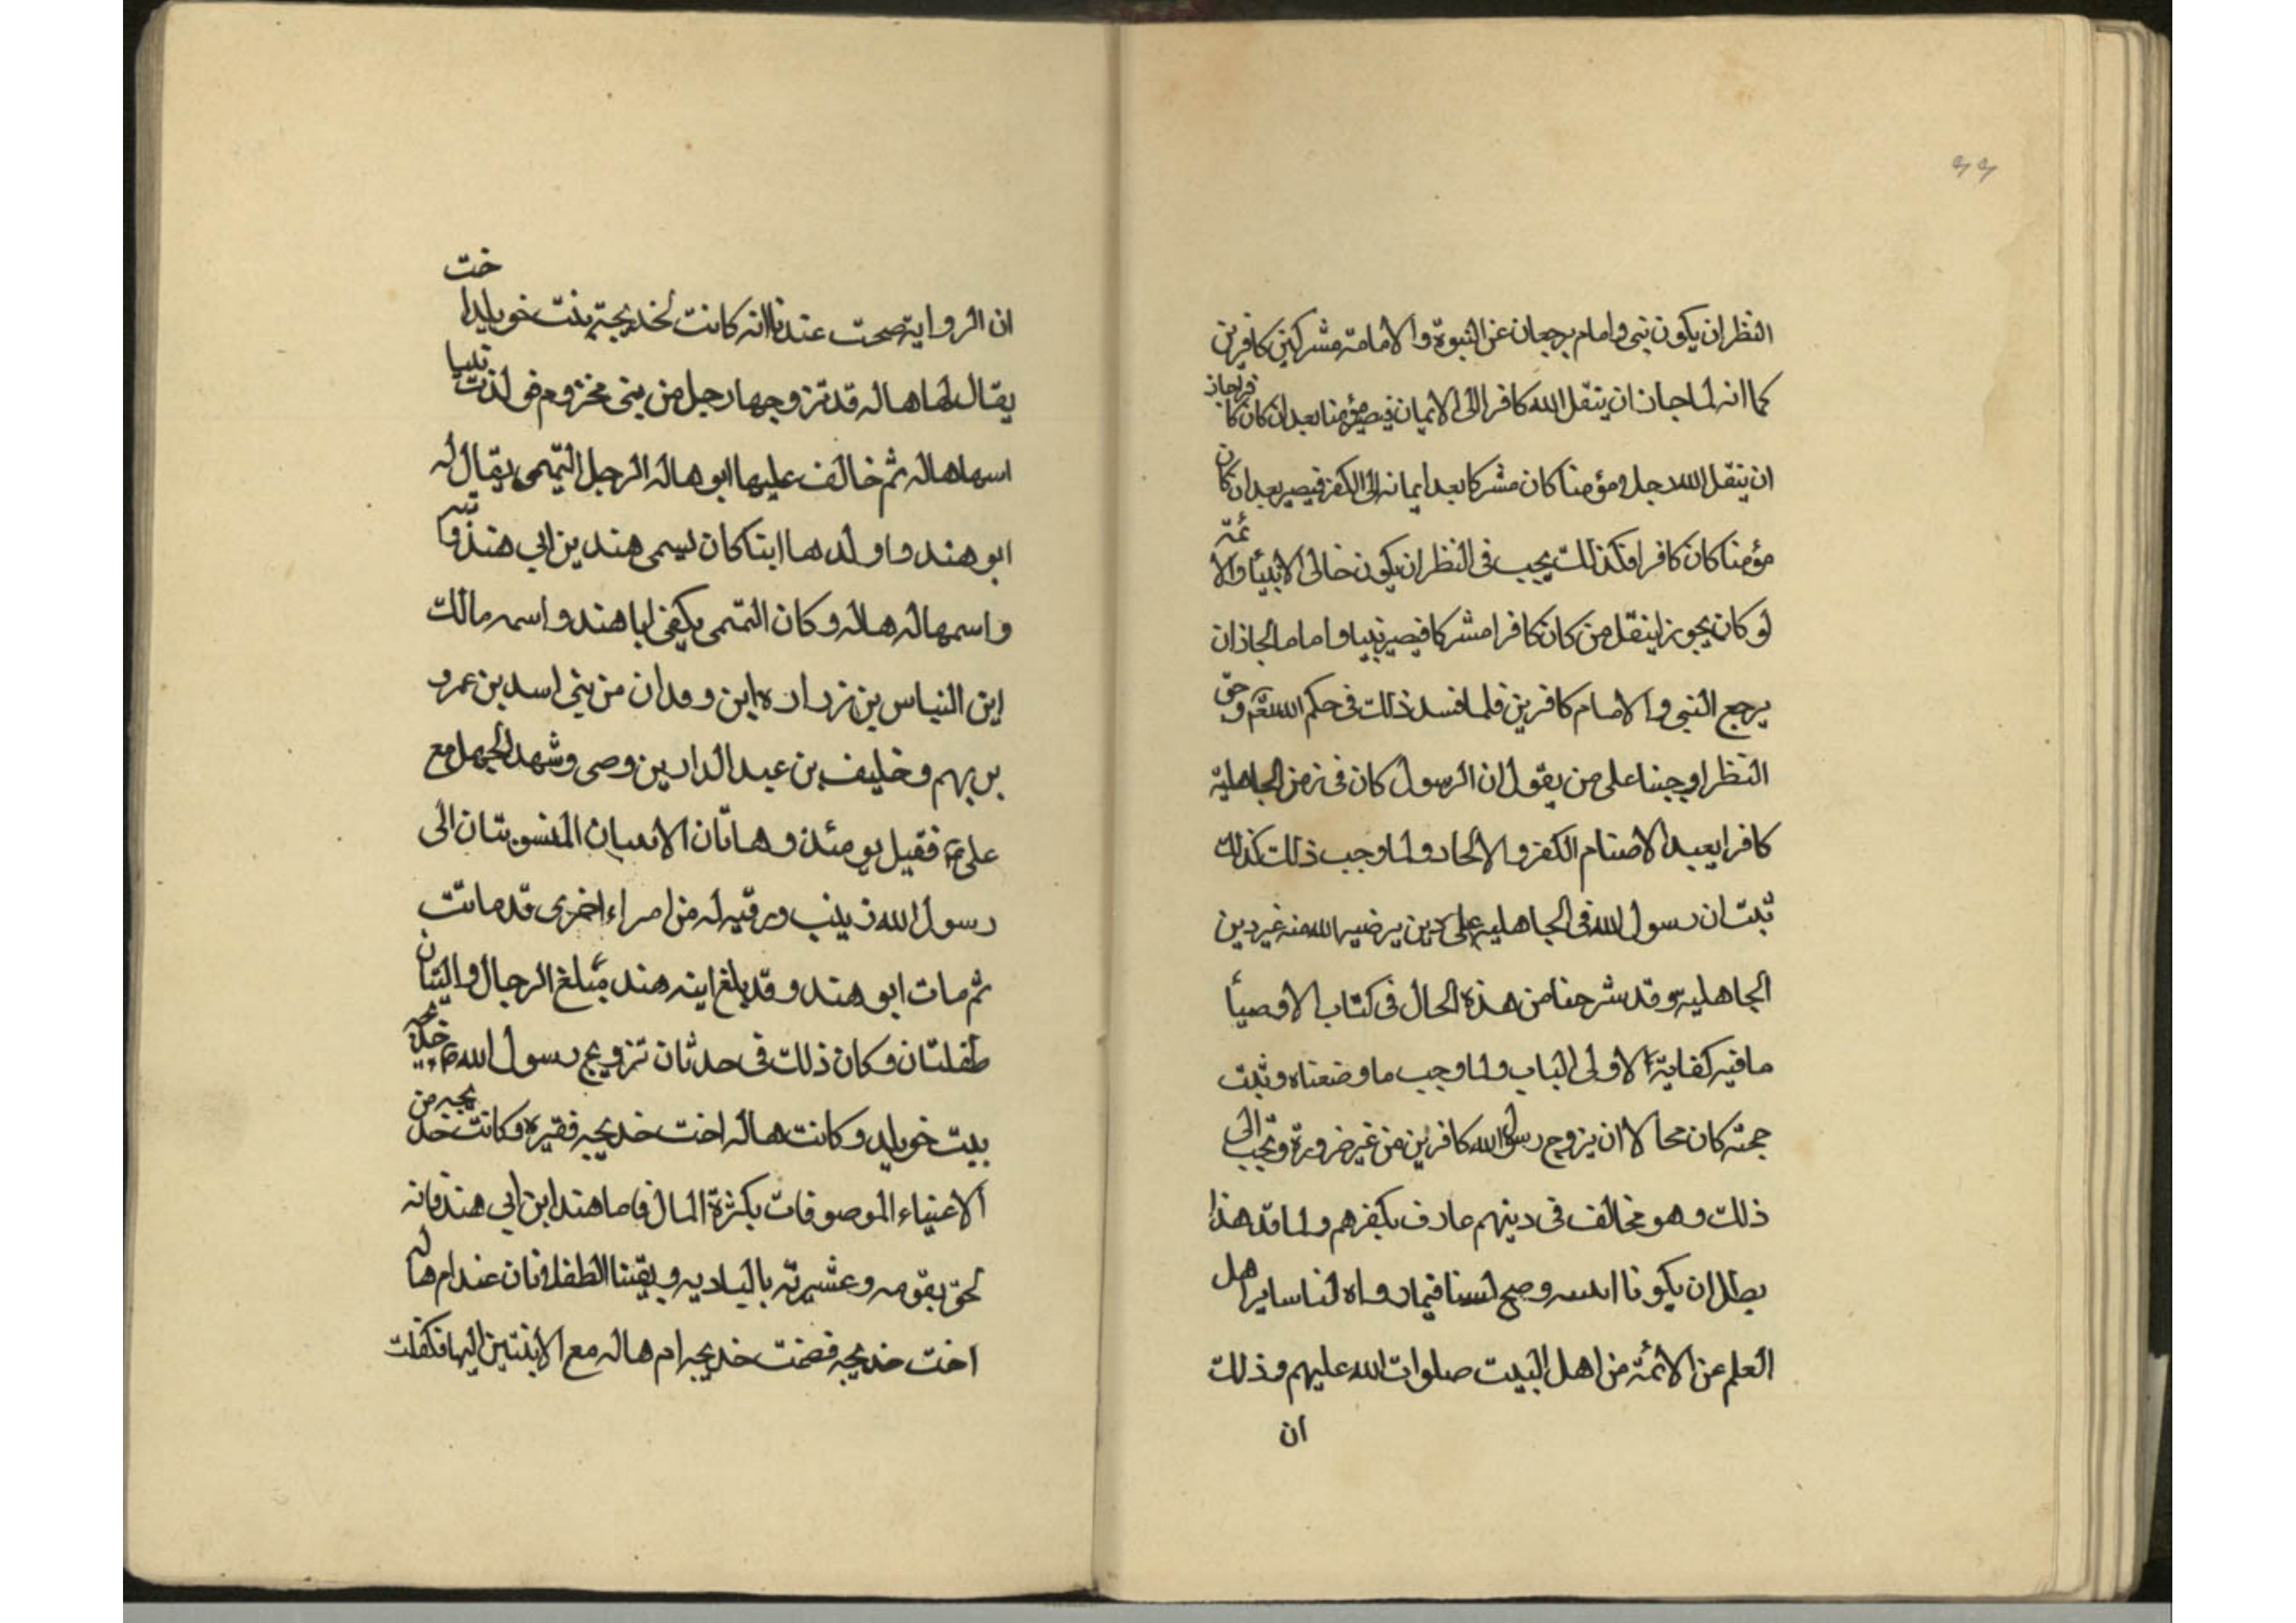 ٩٩
النظر ان يكون نبى وامام يرجعان عن النبوة والامامة مشركين كافرين
كما انه لما جاز ان ينقل الله كافرا الى الايمان فيصير مؤمنا بعد ان كان كافرا جاز
ان ينقل الله جل ومؤمنا كان مشركا بعد ايمانه الى الكفر فيصير بعد ان كان
مؤمنا كان كافرا فكذلك يجب فى النظر ان يكون خالى الانبيأ والائمة
لو كان يجوز اينقل من كان كافرا مشركا فيصير نبيا واماما لجاز ان
يرجع النبى والامام كافرين فلما فسد ذلك فى حكم الله وحق
النظر اوجبنا على من يقول ان الرسول كان فى زمن الجاهلية
كافرا يعبد الاصنام الكفر والالحاد ولما وجب ذلك كذلك
ثبت ان رسول الله فى الجاهليه على دين يرضيه الله منه غير دين
الجاهليه وقد شرحنا من هذه الحال فى كتاب الاوصيأ
ما فيه كفاية لاولى الباب ولما وجب ما وضعناه وثبت
حجته كان محالا ان يزوج رسول الله كافرين من غير ضرورة وتجب الى
ذلك وهو مخالف فى دينهم عارف بكفرهم ولما هذا
بطل ان يكونا وصح لنا فيما رواه لنا ساير اهل
العلم عن الائمة من اهل البيت صلوات الله عليهم وذلك
ان
ان الرواية صحت عندنا انه كانت لخديجة بنت خويلد اخت
يقال لها هاله قد تزوجها رجل من بنى مخزوم فولدت بنتا
اسمها هاله ثم خالف عليها ابو هاله الرجل التميمى يقال له
ابو هند واولدها ابنا كان يسمى هند بن ابى هند و
واسمها له هاله وكان التمتمى يكفى ابا هند واسمه مالك
ابن النباس بن زراره ابن وفدان من بنى اسد بن عمرو
بن بهم وخليف بن عبد الدار بن وصى وشهد الجهل مع
على فقيل يومئذ وهاتان المنسوبتان الى
رسول الله زينب ورقيه له من امراء اخرى قد ماتت
ثم مات ابو هند وقد بلغ ابنه هند مبلغ الرجال والبنتان
طفلتان وكان ذلك فى حدثان تزويج رسول الله خديجه
ببت خويلد وكانت هاله اخت خديجه فقيره وكانت خديجه من
الاغنياء الموصوفات بكثرة المال فاما هند ابن ابى هند فانه
لحق بقومه وعشيرته بالباديه وبقيتا الطفلتان عند ام هاله
اخت خديجه فضمت خديجه ام هاله مع الابنتين اليها فكفلت